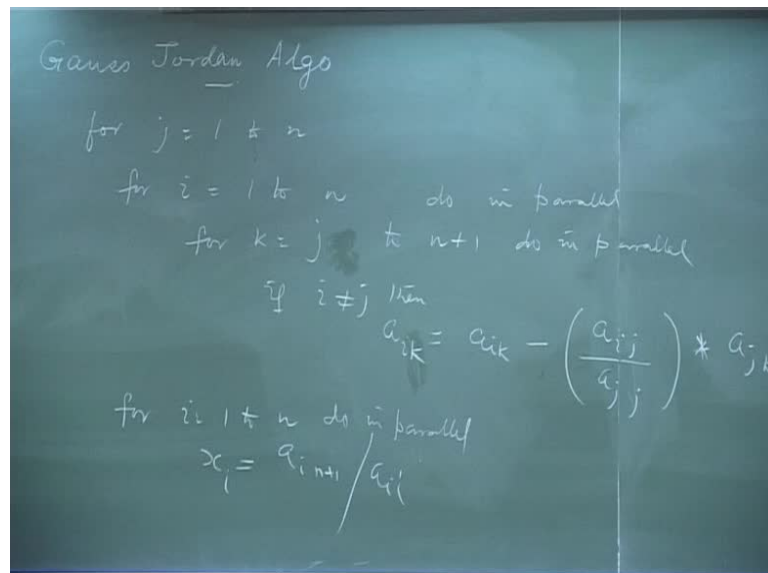 Gauss Jordan Algo
for j = 1 to n
for i = 1 to n do in parallel
for k = j to n+1 do in parallel
if i ≠ j then
a_{ik} = a_{ik} - (a_{ij} / a_{jj}) * a_{jk}
for i = 1 to n do in parallel
x_i = a_{i n+1} / a_{ii}